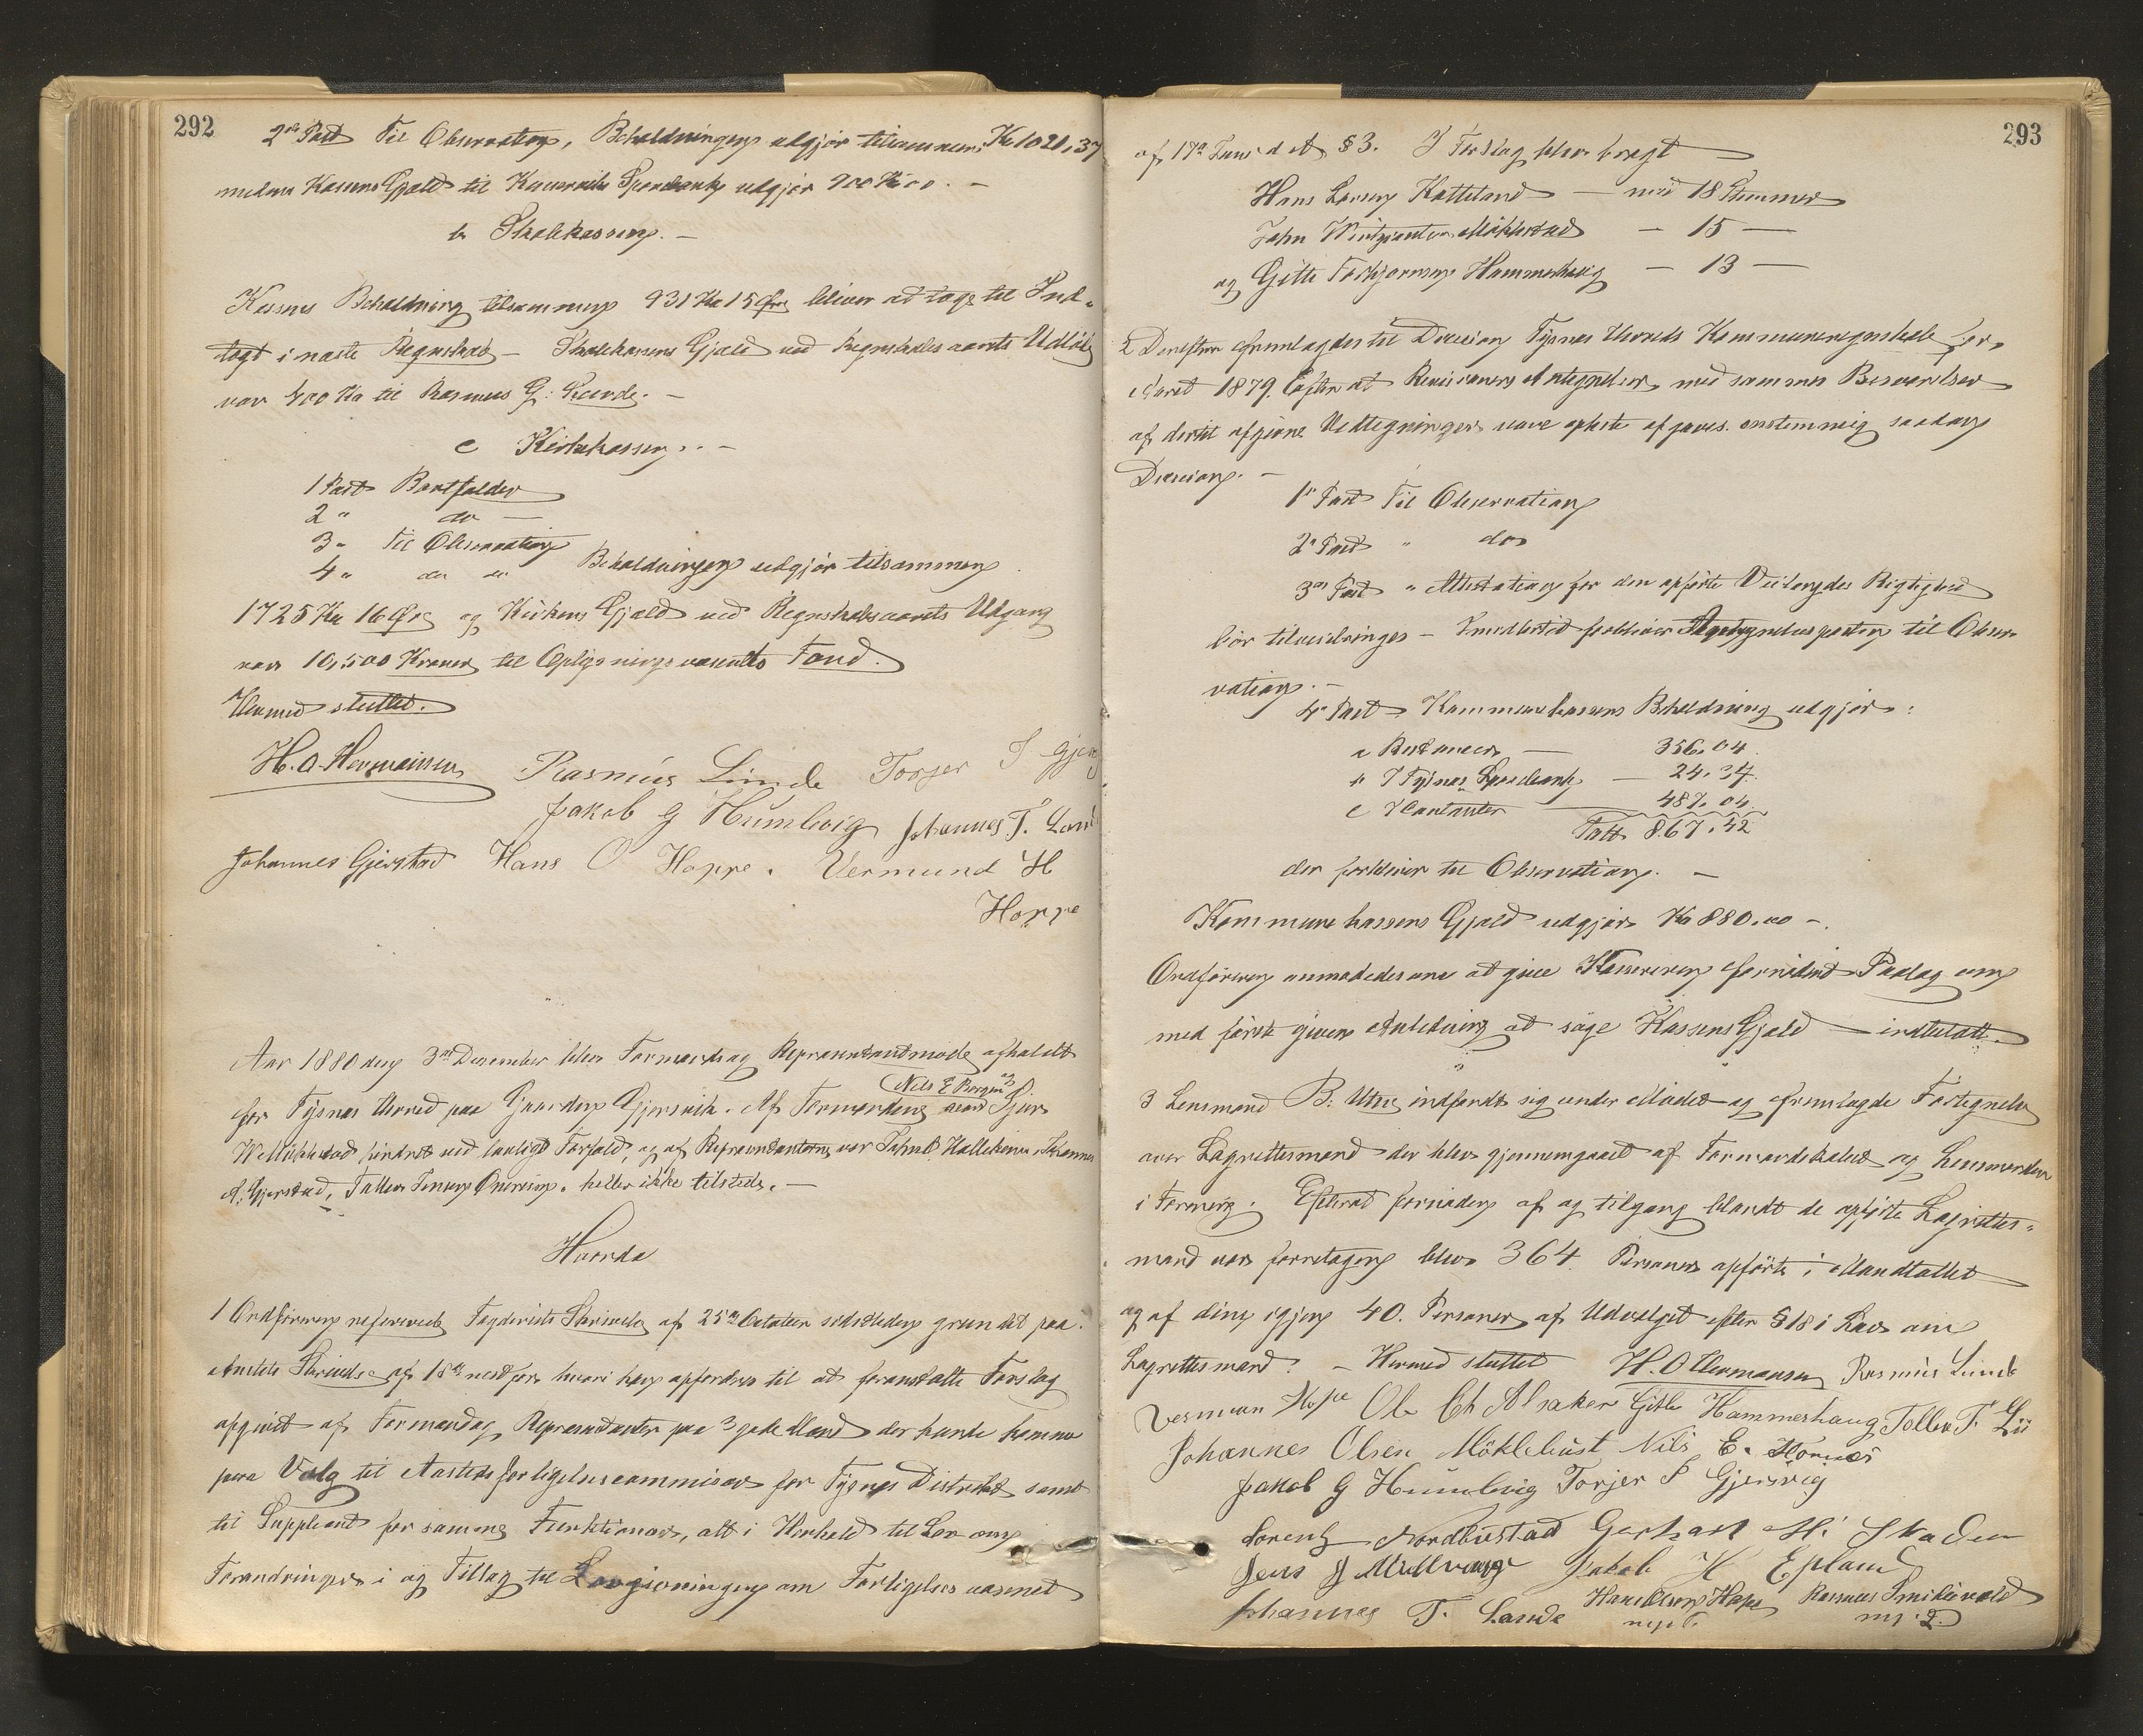 292
2den Post Til Observation, Beholdningen udgjør tilsammen Kr 1021,37
medens Kassens Gjæld til Sparebank udgjør 900 Kr 00. –
b Skolekassen. –
Kassens Beholdning tilsammen 931 Kr 15 Øre bliver at tage til Ind-
tægt i næste Regnskab – Skolekassens Gjæld ved Regnskabsaarets Udløb
var 400 Kr til Rasmus G: –
c Kirkekassen. –
1 Post Bortfalder
2 " do –
3 " Til Observation
4 " do do Beholdningen udgjør tilsammen
1725 Kr 16 Øre og Kirkens Gjæld ved Regnskabsaarets Udgang
var 10,500 Kroner til Oplysningsvæsenets Fond.
Hermed sluttet.
H. O. Hermansen Rasmus Lunde Torger J Gjer
Jakob G Humlevig Johannes T. Land
Johannes Gjerstad Hans O Hoppe. Vermund H
Hoppe
Aar 1880 den 3de December blev Formands og Repræsentantmøde afholdt
for Tysnæs Herred paa Gaarden Gjersvik. Af Formændene var Sjur
Nils E og
W Møklestad hindret ved lovligt Forfald, og af Repræsentanterne var John O. Johannes
A. Gjerstad, Tollev Jensen heller ikke tilstede. –
Hvorda
1 Ordføreren refererede Fogderiets Skrivelse af 25de October sidstleden grundet paa
Amtets Skrivelse af 18de næstfør hvori han opfordres til at foranstalte Forslag
opgivet af Formænd og Repræsentanter paa 3 gode Mænd der kunde komme
paa Valg til Aasteds forligelsescommissær for Tysnæs Distrikt samt
til Suppleant for samme Funktionær, alt i Henhold til Lov om
Forandringer i og Tillæg til Lovgivningen om Forligelses væsenet
293
af 17de Juni d A § 3. I Forslag blev bragt
Hans Larsen Katteland – med 18 Stemmer
John Møklestad – 15 –
og Gitle Torbjørnsen Hammerhaug – 13 –
2 Derefter fremlagdes til Decision Tysnæs Herreds Kommuneregnskab for
Aaret 1879. Efter at Revisionens Antegnelser med sammes Besvarelser
af dertil afgivne Vedtegninger vare oplæste afgaves enstemmig saadan
Decision. –
1st Post Til Observation
2n Post " do
3die Post " Attestation for den opførte Veilængdes Rigtighed
bør tilveiebringes – Imidlertid forbliver Antegnelsesposten til Obser-
vation. –
4de Post Kommunekassens Beholdning udgjør:
a Restancer – 356.04
b I Tysnæs Sparebank – 24.34
c I Contanter – 487.04
Tils 867.42
der forbliver til Observation. –
Kommunekassens Gjæld udgjør Kr 880.00 –.
Ordføreren anmodedes om at give Kassereren fornødent Paalæg om
med først given Anledning at søge Kassens Gjæld – indbetalt.
3 Lensmand B. Utne indfandt sig under Mødet og fremlagde Fortegnelse
over Lagrettesmænd der blev gjennemgaaet af Formandskabet og Lensmanden
i Forening. Efterat fornøden af og tilgang blandt de opførte Lagrettes-
mænd var foretagen blev 364. Personer opført i Mandtallet
og af dem igjen 40. Personer af Udvalget efter § 18 i Lov om
Lagrettesmænd. – Hermed sluttet H. O Hermansen Rasmus Lunde
Vermun Hope Ole Ch Alsaker Gitle Hammerhaug Tollev T. Lii
Johannes Olsen Møklebust Nils E. Hornes
Jakob G Humlevig Torjer J Gjersvig
Lorentz Nordbustad Gerhard M: Skaden
Jens J Midtvaage Jakob H Epland
Johannes T. Lande Hans Olsen Hope Rasmus
m. p. P. m. p. P.